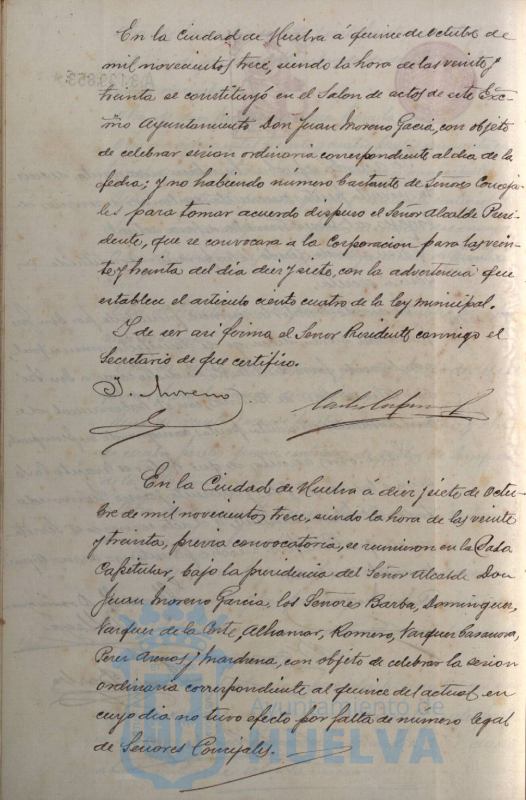 En la Ciudad de Huelva á quince de Octubre de
mil novecientos trece, siendo la hora de las veinte y
treinta se constituyó en el Salon de actos de este Exc-
mo Ayuntamiento Don Juan Moreno Garcia, con objeto
de celebrar sesion ordinaria correspondiente al dia de la
fecha; y no habiendo número bastante de Señores Conceja-
les para tomar acuerdo dispuso el Señor Alcalde Presi-
dente, que se convocara a la Corporacion para las vein-
te y treinta del dia diez y siete, con la advertencia que
establece el articulo ciento cuatro de la ley municipal.
Y de ser asi firma el Señor Presidente conmigo el
Secretario de que certifico.
J. Moreno
En la Ciudad de Huelva á diez y siete de Octu-
bre de mil novecientos trece, siendo la hora de las veinte
y treinta, previa convocatoria, se reunieron en la Casa
Capitular, bajo la presidencia del Señor Alcalde Don
Juan Moreno Garcia, los Señores Barba, Dominguez,
Vazquez de la Corte, Alhamar, Romero, Vazquez Casanova,
Perez Arenos y Mardrena, con objeto de celebrar la sesion
ordinaria correspondiente al quince del actual en
cuyo dia no tuvo efecto por falta de número legal
de Señores Concejales.
Ayuntamiento de
HUELVA